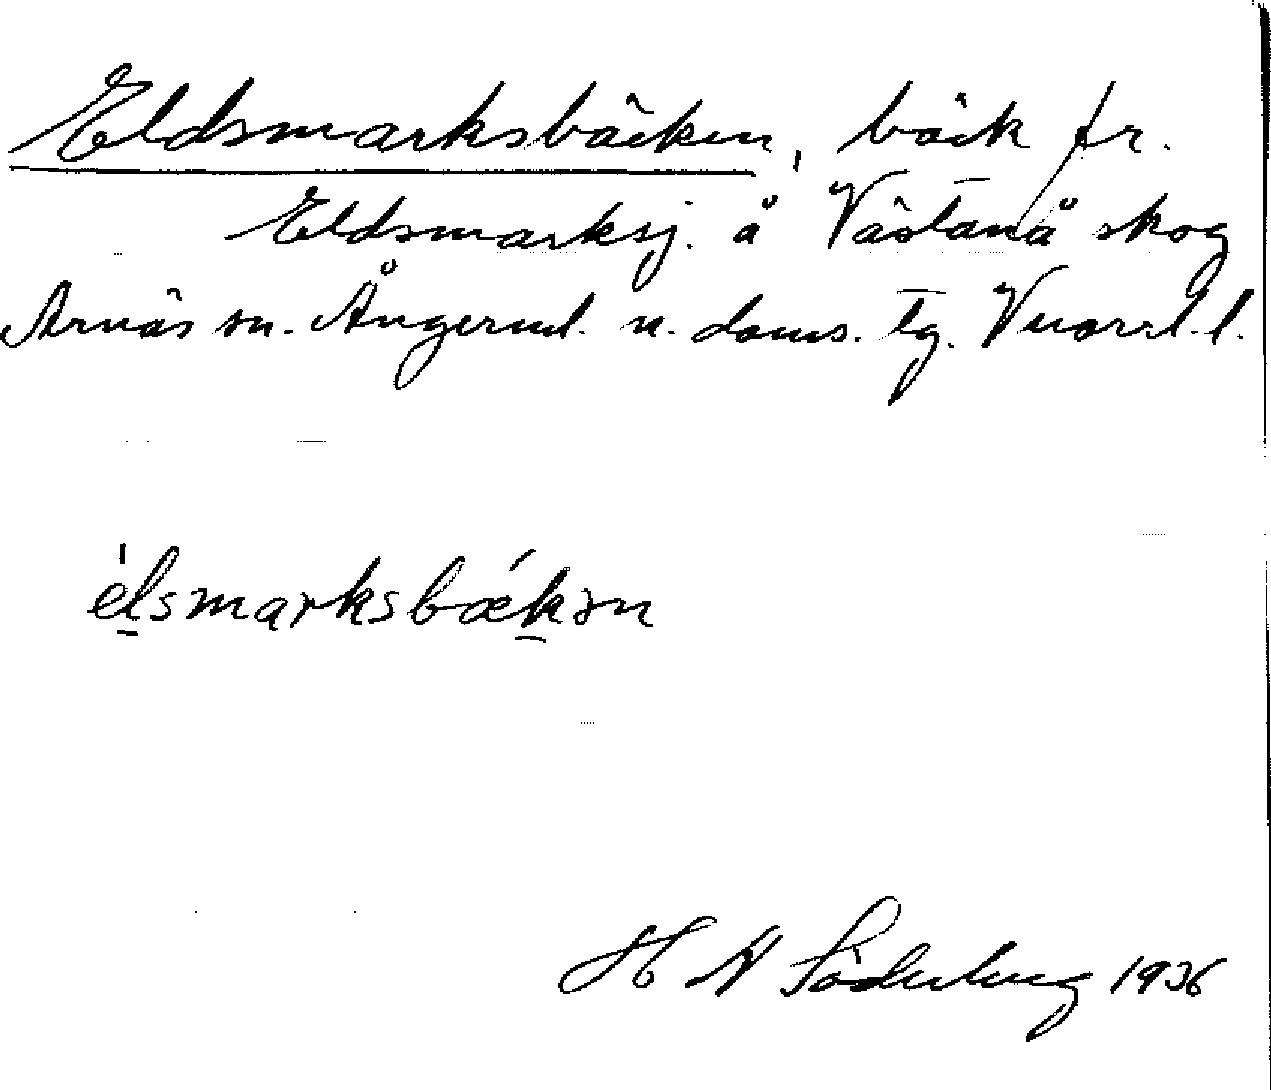 Eldsmarksbäcken, bäck fr.
Eldsmarksj. å Västanå skog
Arnäs sn. Ångerml. n. doms. tg.
élsmarksbækən
H N Söderberg 1936